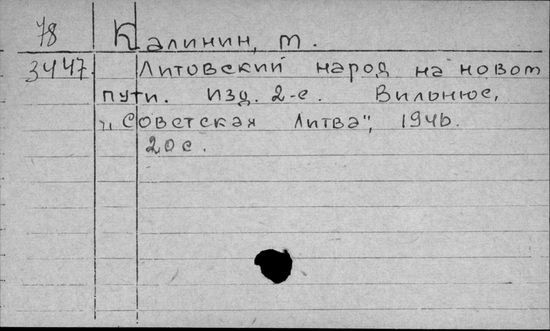 78 Калинин, М.
3447 Литовский народ на новом
пути. Изд. 2-е. Вильнюс,
"Советская Литва", 1946.
20 с.